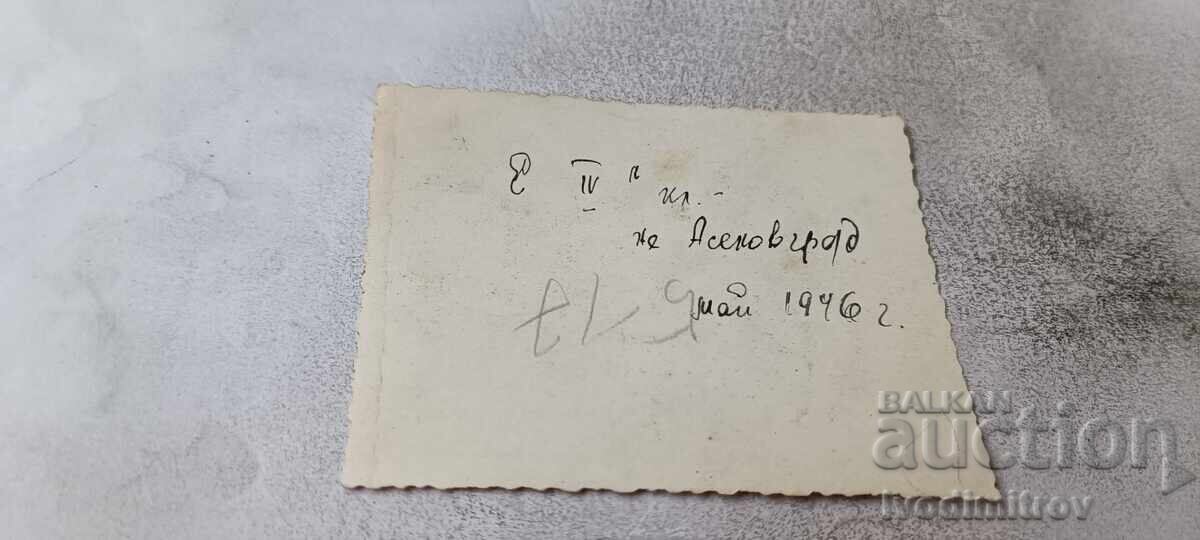 IV " кл. -
на Асеновград
май 1946 г.
BALKAN
auction
Ivodimitrov